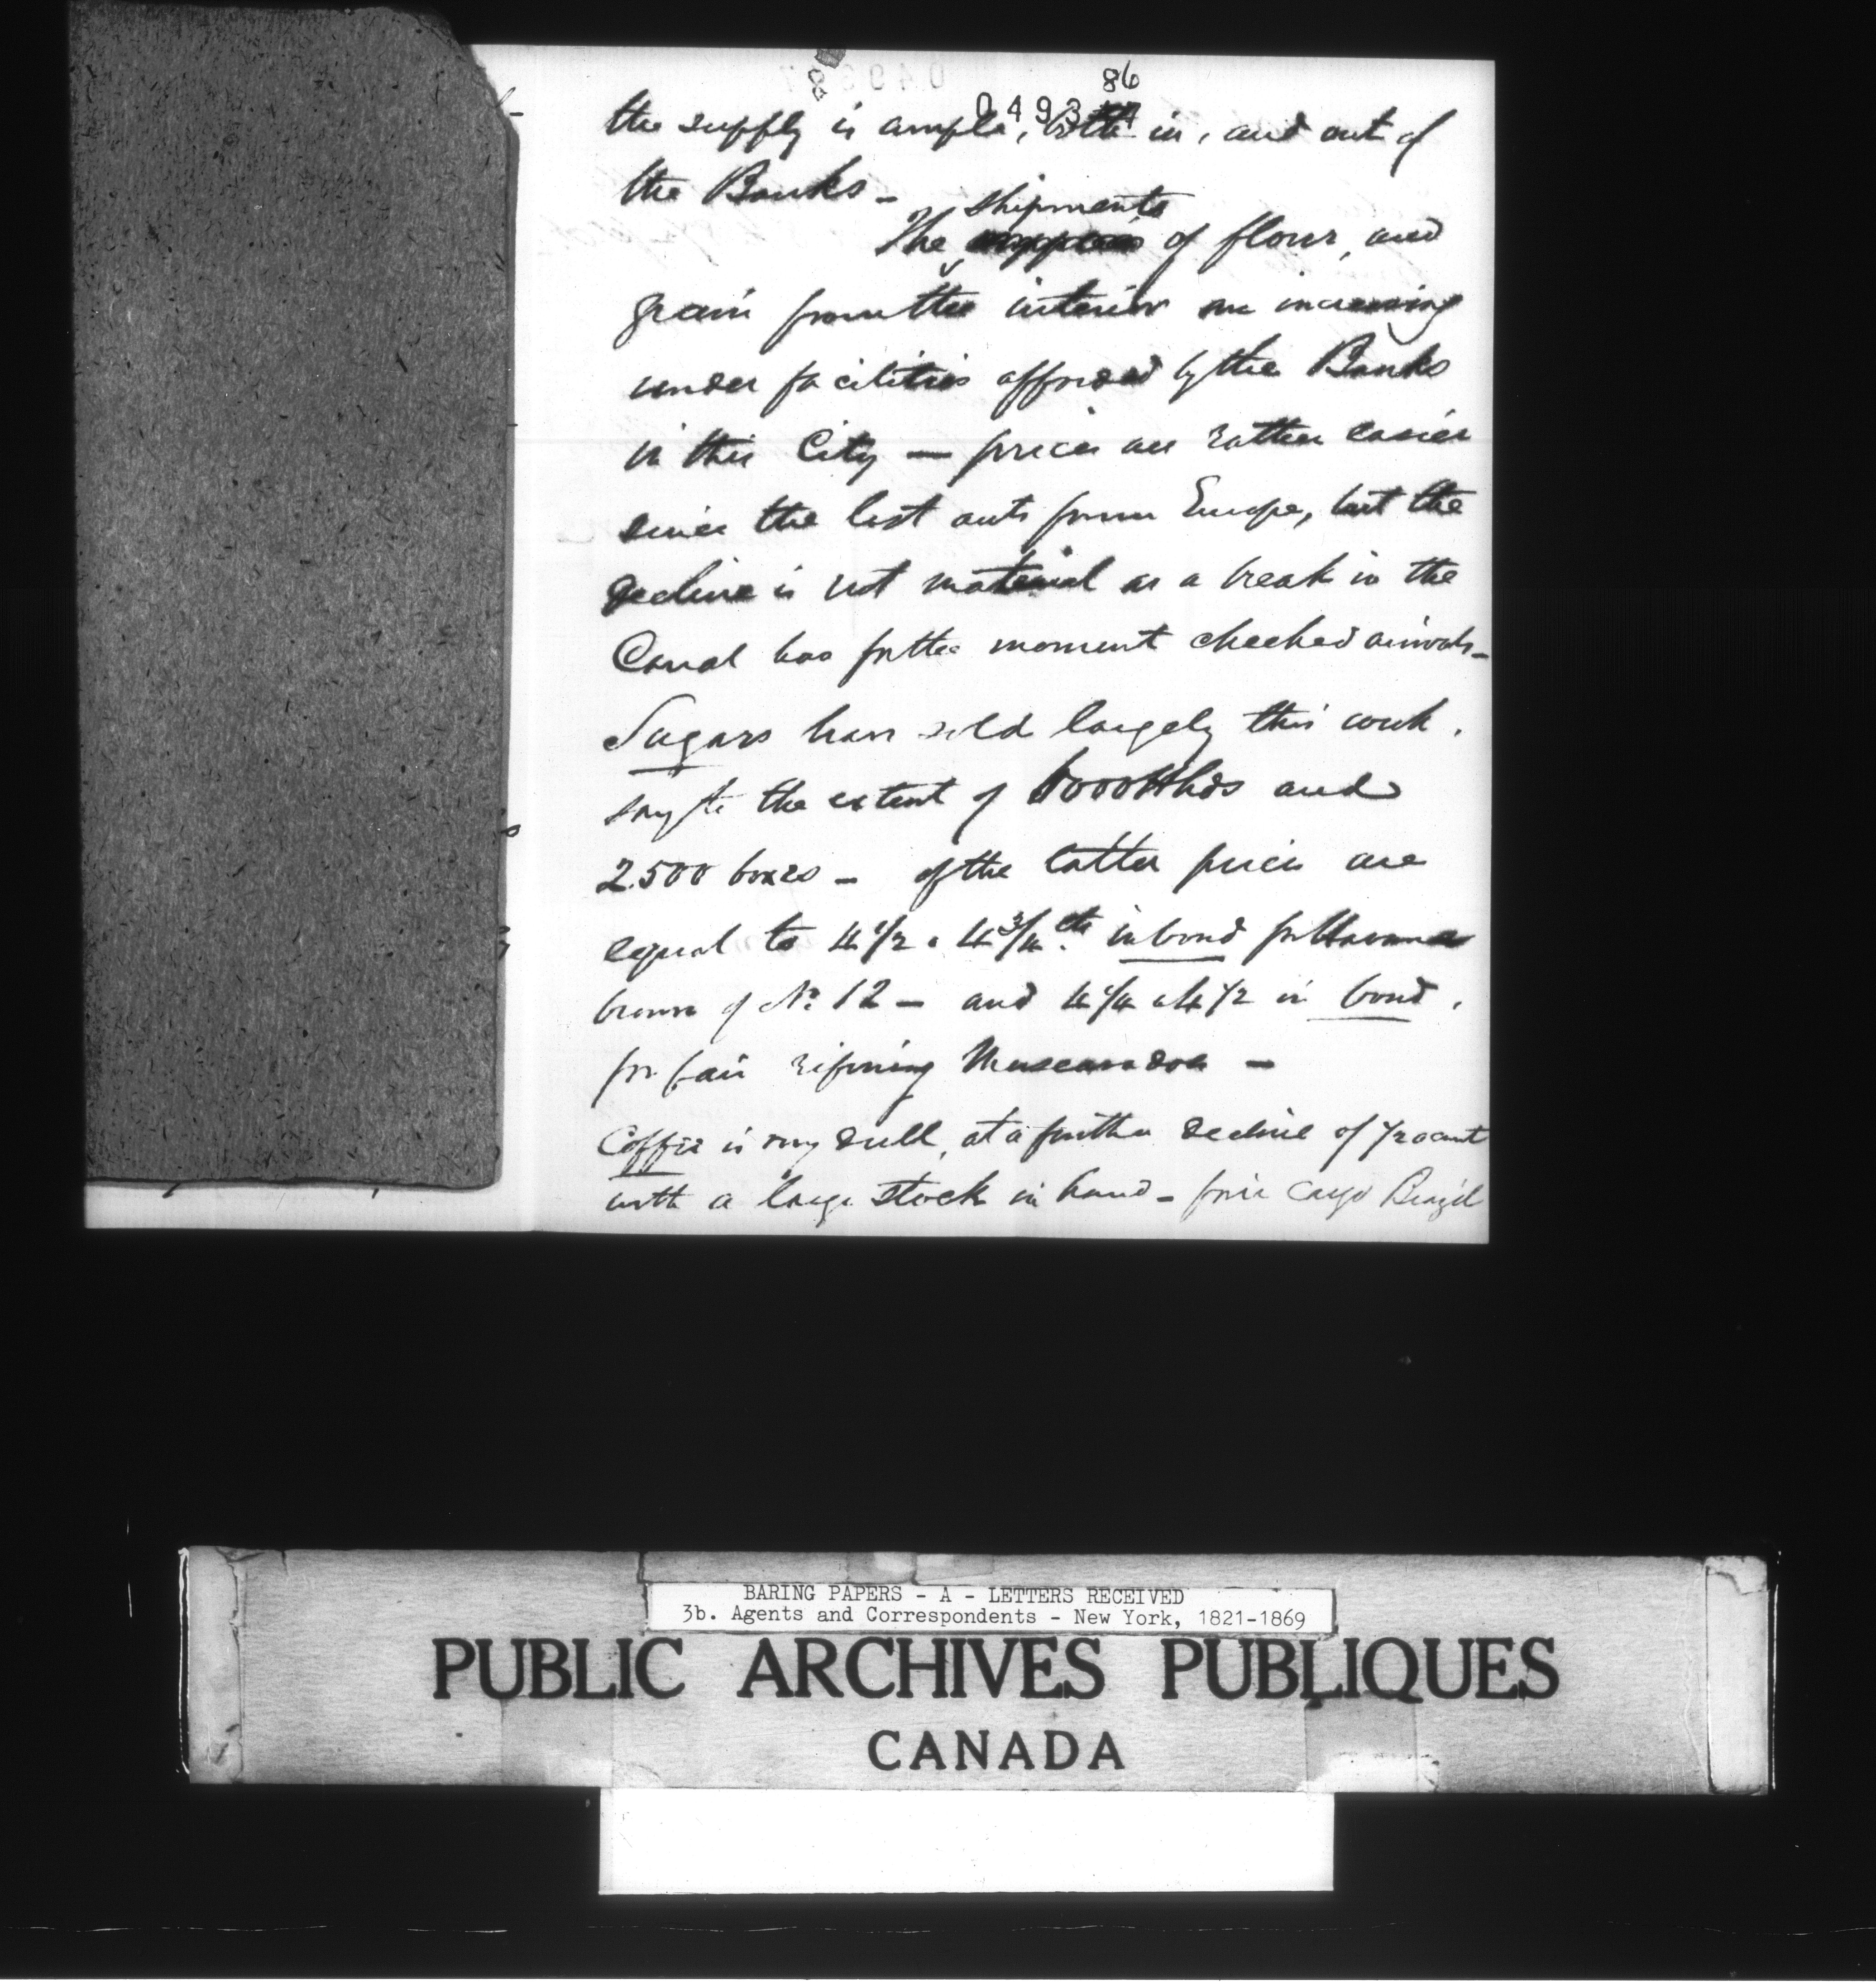 86
the supply is ample, both in, and out of
the Banks -
shipments
The of flour, and
grain from the interior are increasing
under facilities afforded by the Banks
in this City — prices are rather easier
since the last from Europe, but the
decline is not material as a break in the
Canal has for the moment checked arrivals -
Sugars have sold largely this week,
say to the extent of 1000 Hhds and
2.500 boxes - of the latter prices are
equal to 4 1/2 a 4 3/4 cts in bond for Havana
brown of No. 12 - and 4 1/4 a 4 1/2 in bond,
for fair refining Muscovadoes -
Coffee is very dull, at a further decline of 1/2 a cent
with a large stock in hand - prime cargo Brazil
BARING PAPERS - A - LETTERS RECEIVED
3b. Agents and Correspondents - New York, 1821-1869
PUBLIC ARCHIVES PUBLIQUES
CANADA